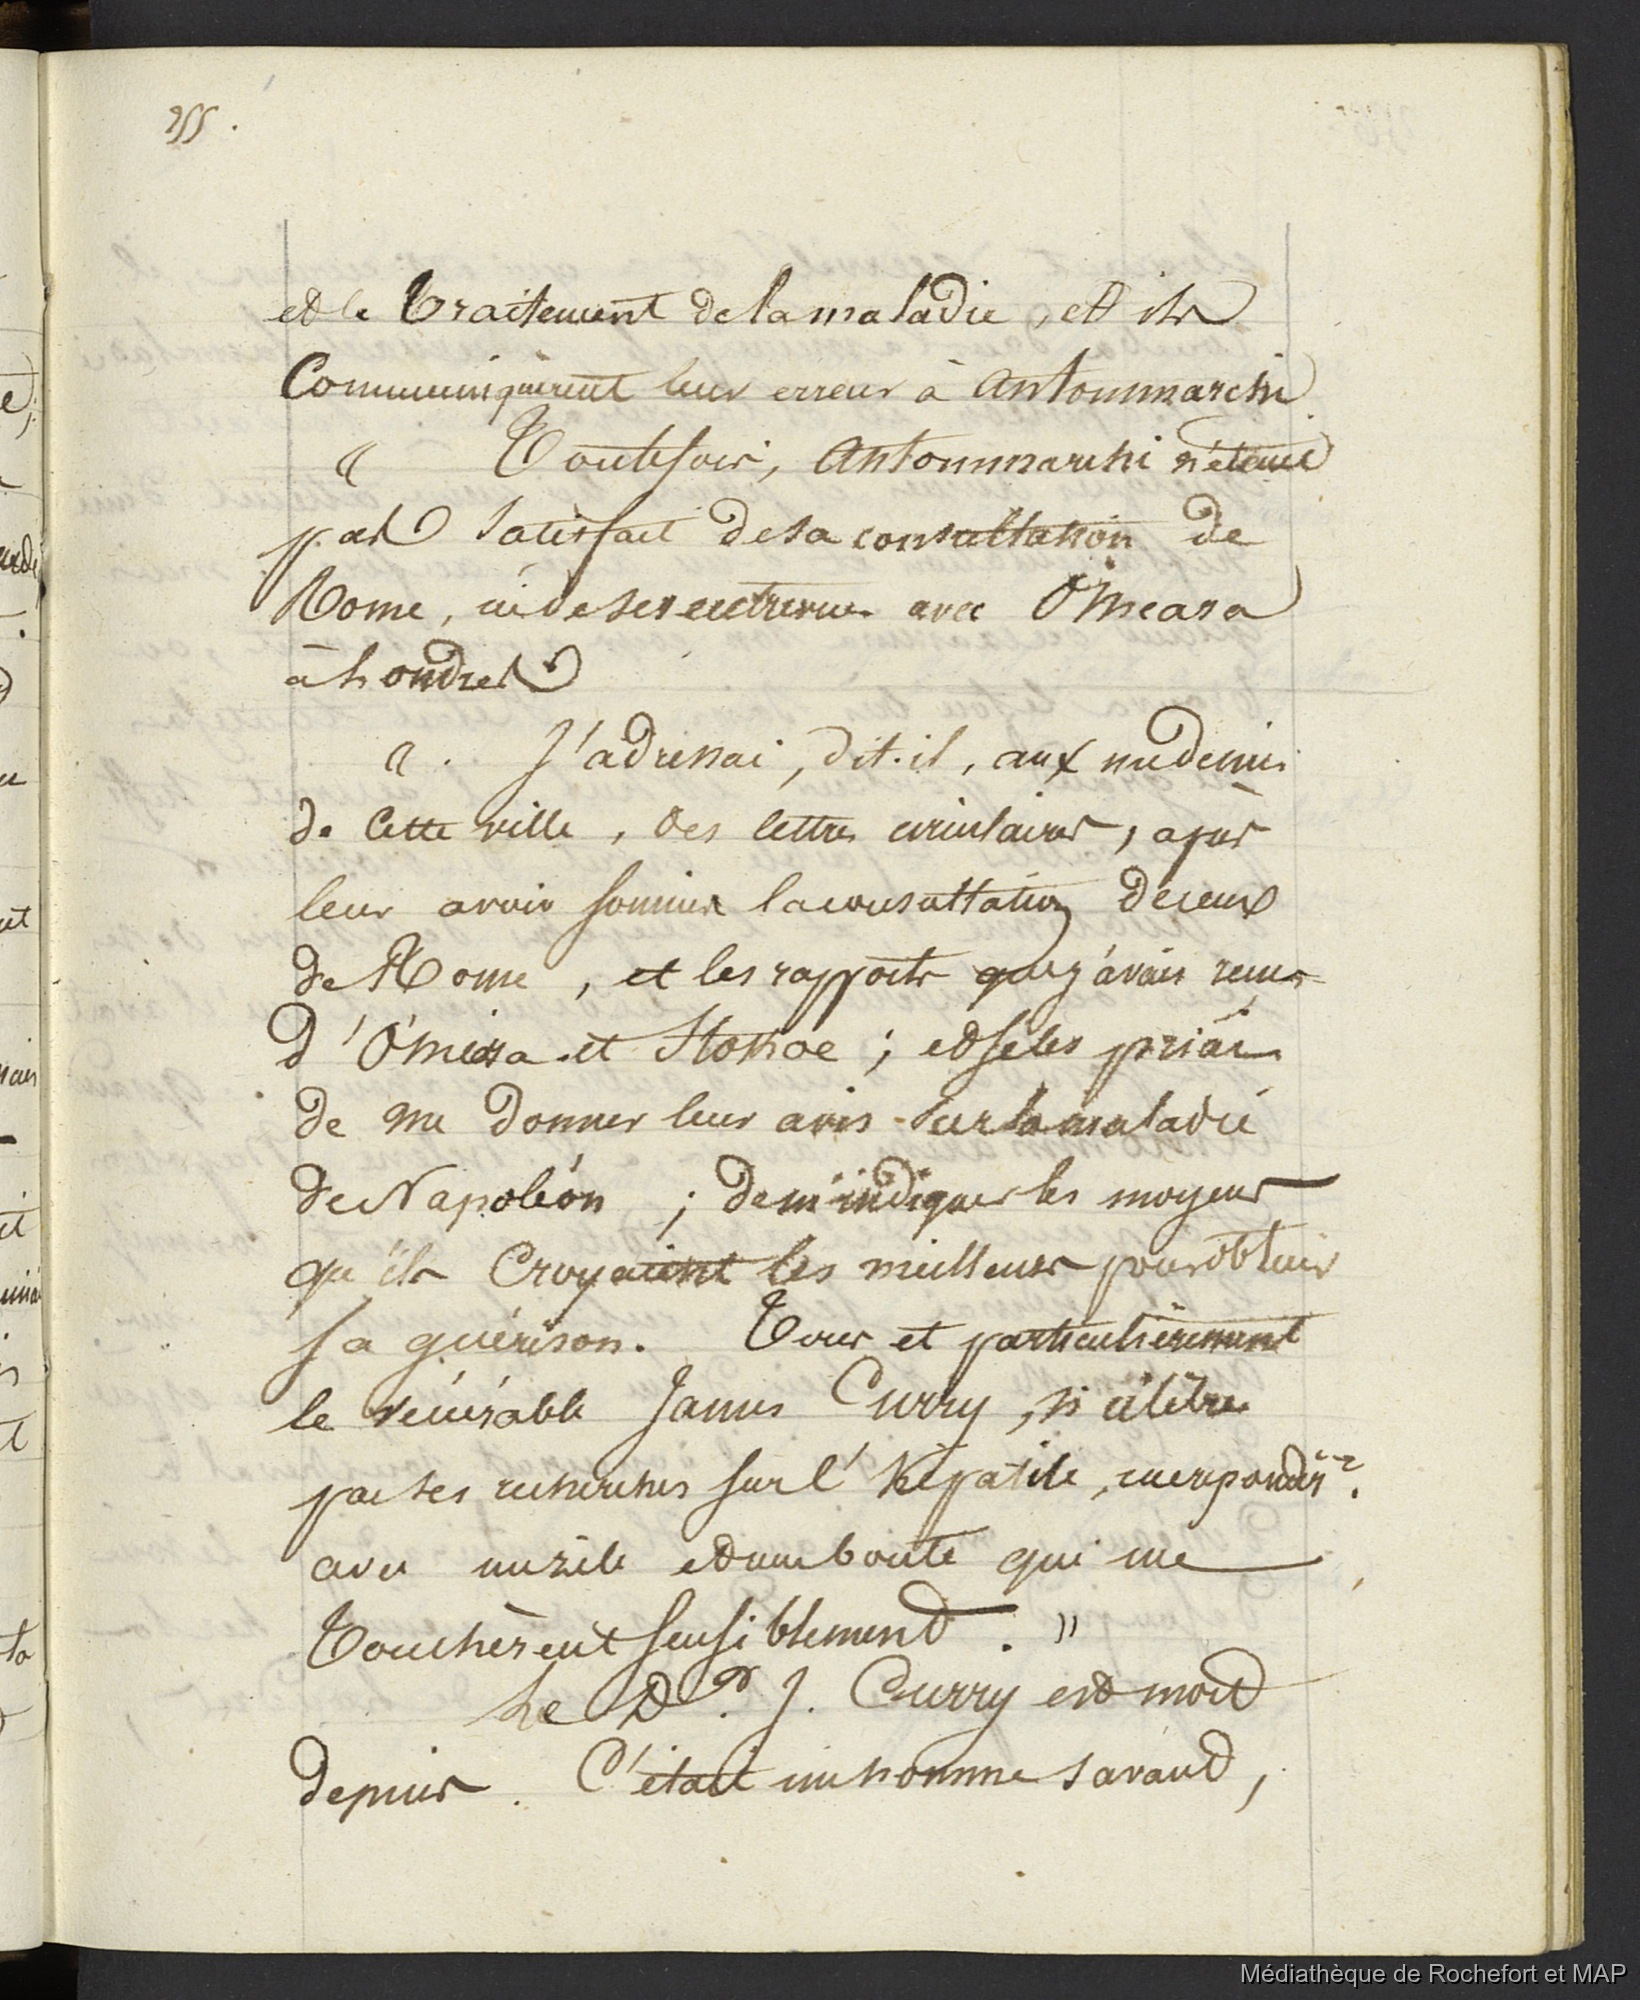 255.
et le traitement de la maladie, et ils
Communiquèrent leur erreur à Antommarchi
« Toutefois, Antommarchi n'étant
pas satisfait de sa consultation de
Rome, ni de ses entrevues avec O'Méara
à Londres
« . J'adressai, dit-il, aux médecins
de Cette ville, des lettres circulaires, après
leur avoir soumis la consultation de ceux
de Rome, et les rapports que j'avais reçus
d'O'Méara et Stokoe ; et je les priai
de me donner leur avis sur la maladie
de Napoléon ; de m'indiquer les moyens
qu'ils Croyaient les meilleurs pour obtenir
sa guérison. Tous et particulièrement
le vénérable James Curry, si célèbre
par ses recherches sur l'hépatite, me répondirt.
avec un zèle et une bonté qui me
Touchèrent sensiblement. »
Le Dr. J. Curry est mort
depuis. C'était un homme savant,
Médiathèque de Rochefort et MAP